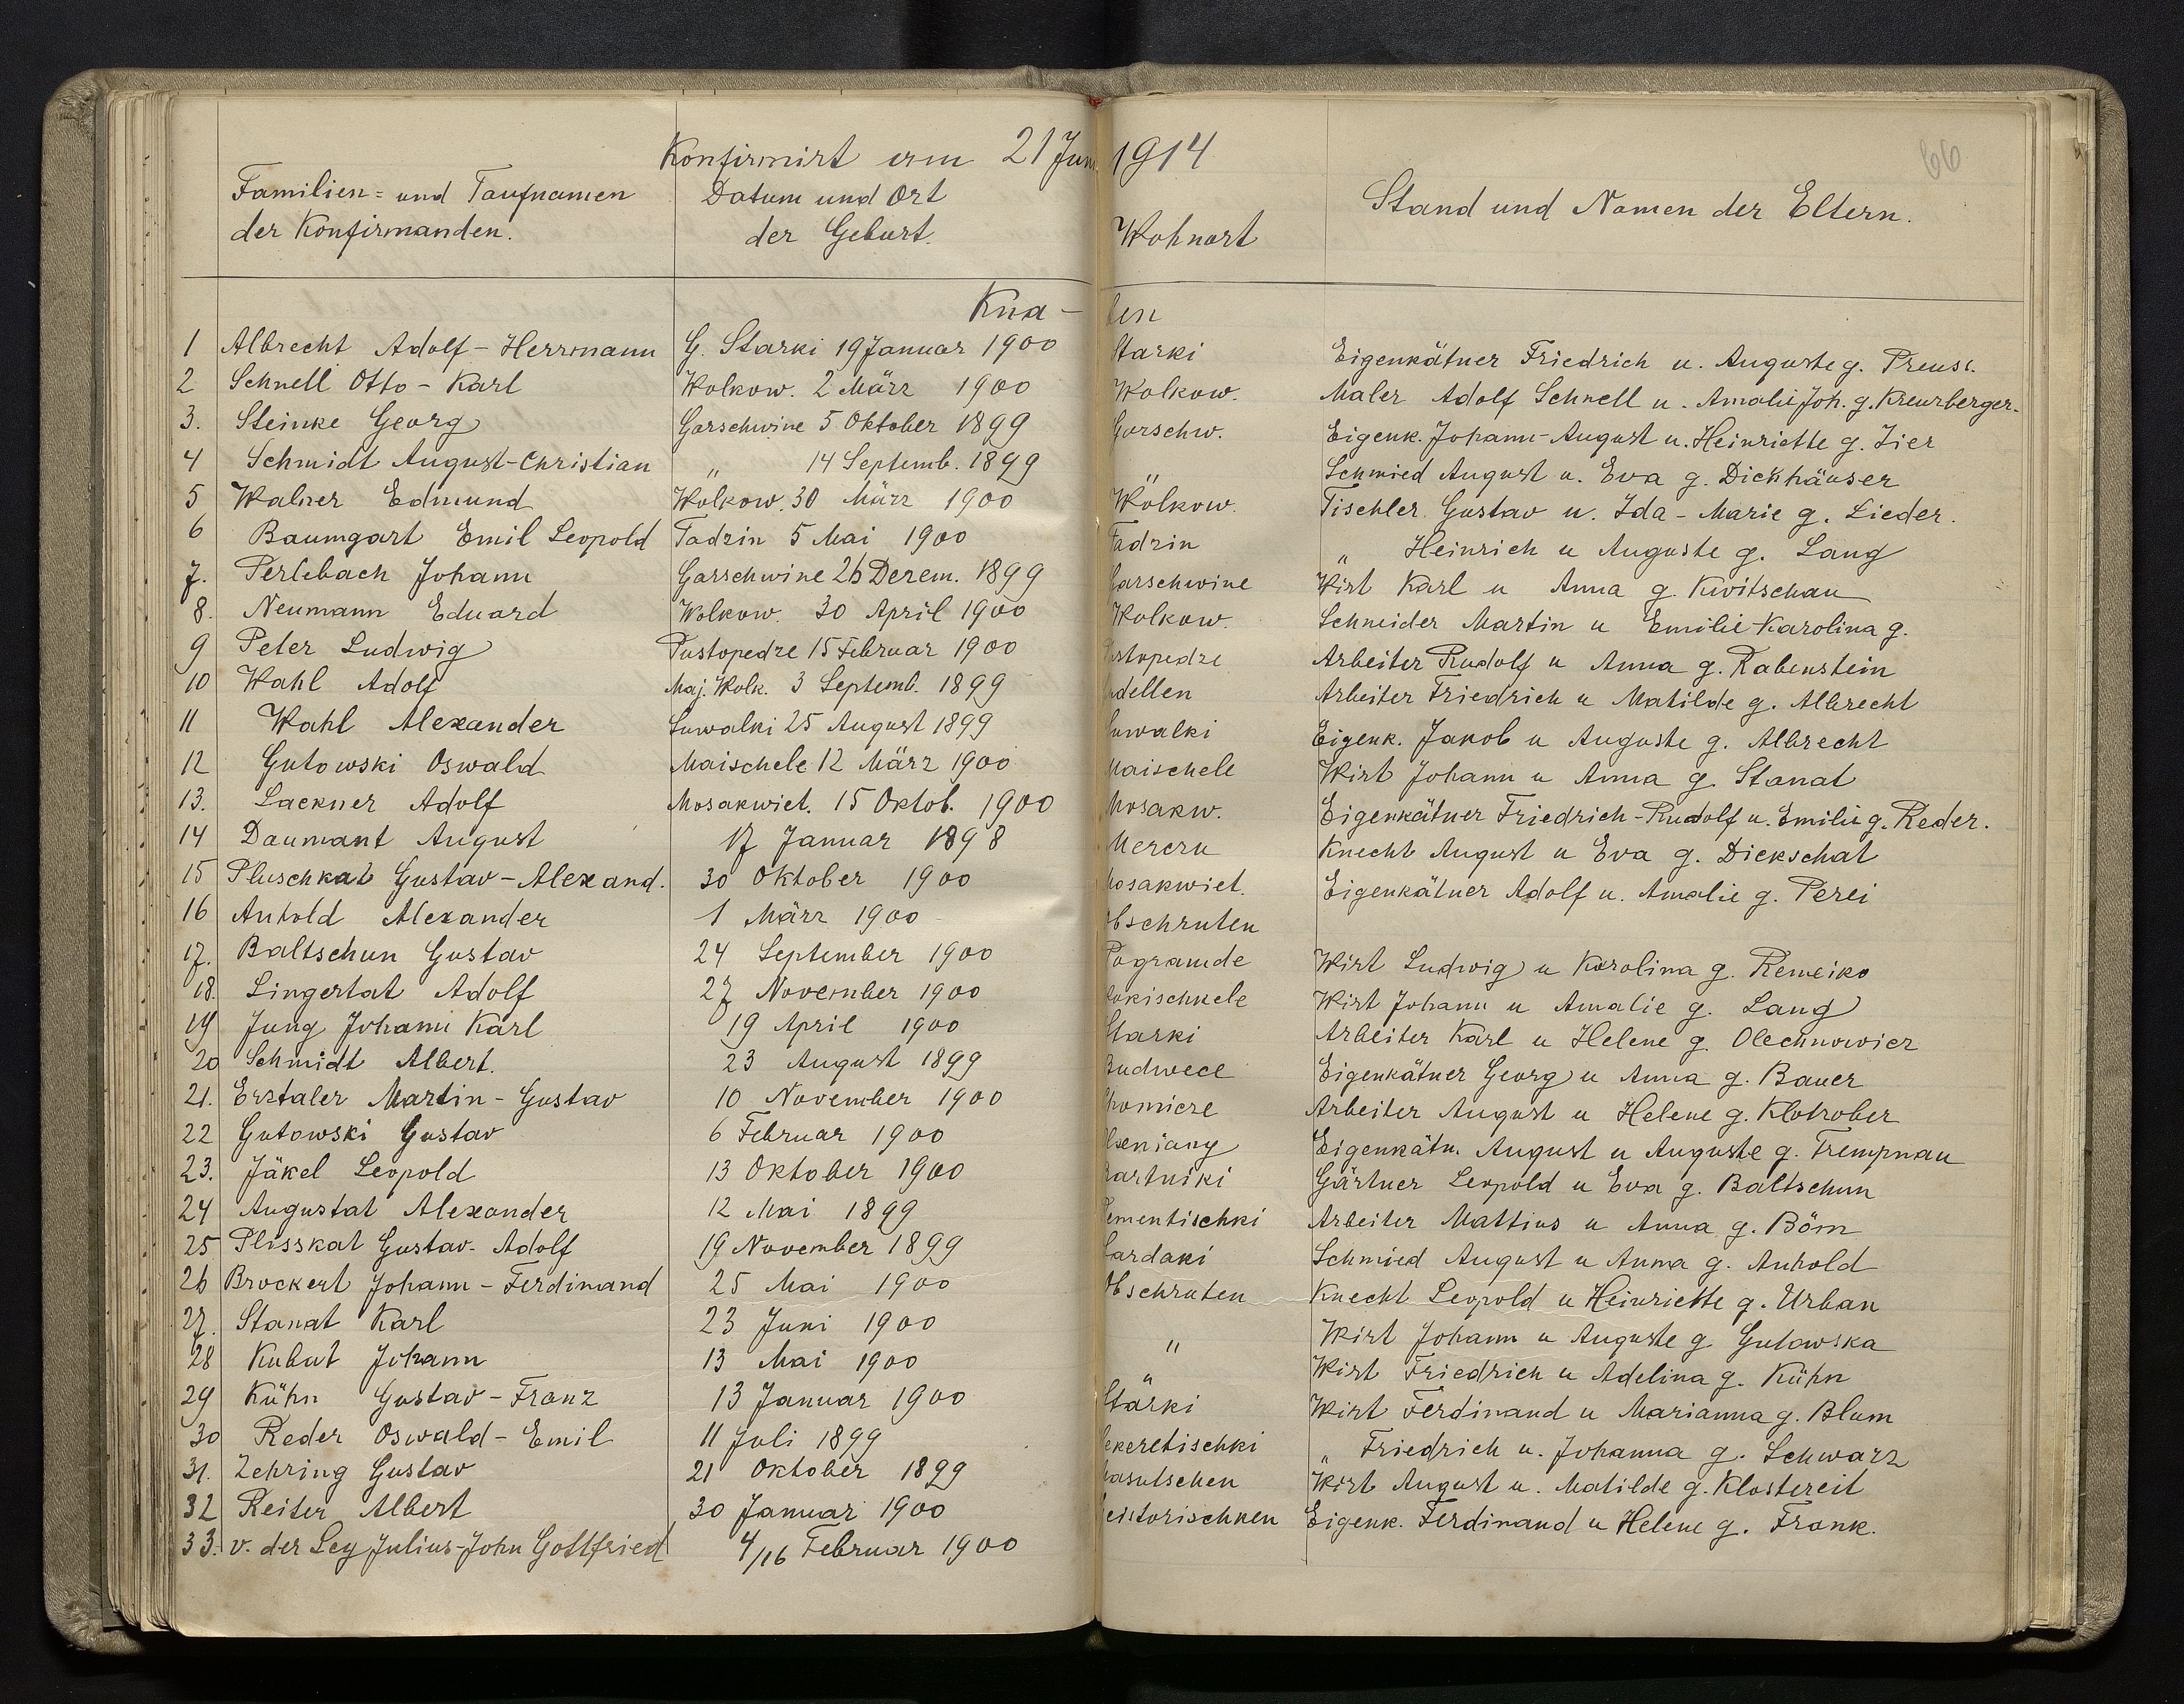 Konfirmirt am 21 Juni 1914
66
Familien- und Taufnamen der Konfirmanden.
Datum und Ort der Geburt.
Wohnort
Stand und Namen der Eltern.
Knaben
1 Albrecht Adolf-Herrmann G. Starki 19 Januar 1900 Starki Eigenkätner Friedrich u. Auguste g. Preuss.
2 Schnell Otto-Karl Wolkow. 2 März 1900 Wolkow. Maler Adolf Schnell u. Amalie Joh. g. Kreuzberger.
3. Steinke Georg Garschwine 5 Oktober 1899 Garschw. Eigenk. Johann-August u. Heinriette g. Zier
4 Schmidt August-Christian " 14 Septemb. 1899 " Schmied August u. Eva g. Dickhäuser
5 Walner Edmund Wolkow. 30 März 1900 Wolkow. Tischler Gustav u. Ida-Marie g. Lieder.
6 Baumgart Emil Leopold Tadzin 5 Mai 1900 Tadzin " Heinrich u Auguste g. Lang
7. Perlebach Johann Garschwine 26 Dezem. 1899 Garschwine Wirt Karl u Anna g. Kwitschau
8. Neumann Eduard Wolkow. 30 April 1900 Wolkow. Schneider Martin u Emilie-Karolina g.
9 Peter Ludwig Pustopedze 15 Februar 1900 Pustopedze Arbeiter Rudolf u Anna g. Rabenstein
10 Wahl Adolf Maj. Wolk. 3 Septemb. 1899 dellen Arbeiter Friedrich u Matilde g. Albrecht
11 Wahl Alexander Suwalki 25 August 1899 Suwalki Eigenk. Jakob u Auguste g. Albrecht
12 Gutowski Oswald Maischele 12 März 1900 Maischele Wirt Johann u Anna g. Stanat
13. Lackner Adolf Mosakwiet. 15 Oktob. 1900 Mosakw. Eigenkätner Friedrich-Rudolf u. Emilie g. Reder.
14 Daumant August 17 Januar 1898 Knecht August u Eva g. Dickschat
15 Pluschkat Gustav-Alexand. 30 Oktober 1900 Mosakwiet. Eigenkätner Adolf u. Amalie g. Perei
16 Anhold Alexander 1 März 1900 Obschruten
17. Baltschun Gustav 24 September 1900 Pogramde Wirt Ludwig u Karolina g. Remeiko
18. Lingertat Adolf 27 November 1900 okischkele Wirt Johann u Amalie g. Lang
19 Jung Johann Karl 19 April 1900 Starki Arbeiter Karl u Helene g. Olechnowicz
20 Schmidt Albert. 23 August 1899 Budwece Eigenkätner Georg u Anna g. Bauer
21. Erztaler Martin-Gustav 10 November 1900 homicze Arbeiter August u Helene g. Klotzober
22 Gutowski Gustav 6 Februar 1900 Eigenkätn. August u Auguste g. Trempnau
23. Jäkel Leopold 13 Oktober 1900 artniki Gärtner Leopold u Eva g. Baltschun
24 Augustat Alexander 12 Mai 1899 ementischki Arbeiter Mattius u Anna g. Böm
25 Plisskat Gustav-Adolf 19 November 1899 ardaki Schmied August u Anna g. Anhold
26 Brockert Johann-Ferdinand 25 Mai 1900 Obschruten Knecht Leopold u Heinriette g. Urban
27. Stanat Karl 23 Juni 1900 " Wirt Johann u Auguste g Gutowska
28 Kubat Johann 13 Mai 1900 " Wirt Friedrich u Adelina g. Kühn
29 Kühn Gustav-Franz 13 Januar 1900 Starki Wirt Ferdinand u Marianna g. Blum
30 Reder Oswald-Emil 11 Juli 1899 ekeretischki " Friedrich u. Johanna g. Schwarz
31. Zehring Gustav 21 Oktober 1899 asutschen Wirt August u. Matilde g. Klostereit
32 Reiter Albert 30 Januar 1900 eistorischken Eigenk. Ferdinand u Helene g. Frank.
33. v. der Ley Julius-John Gottfried 4/16 Februar 1900